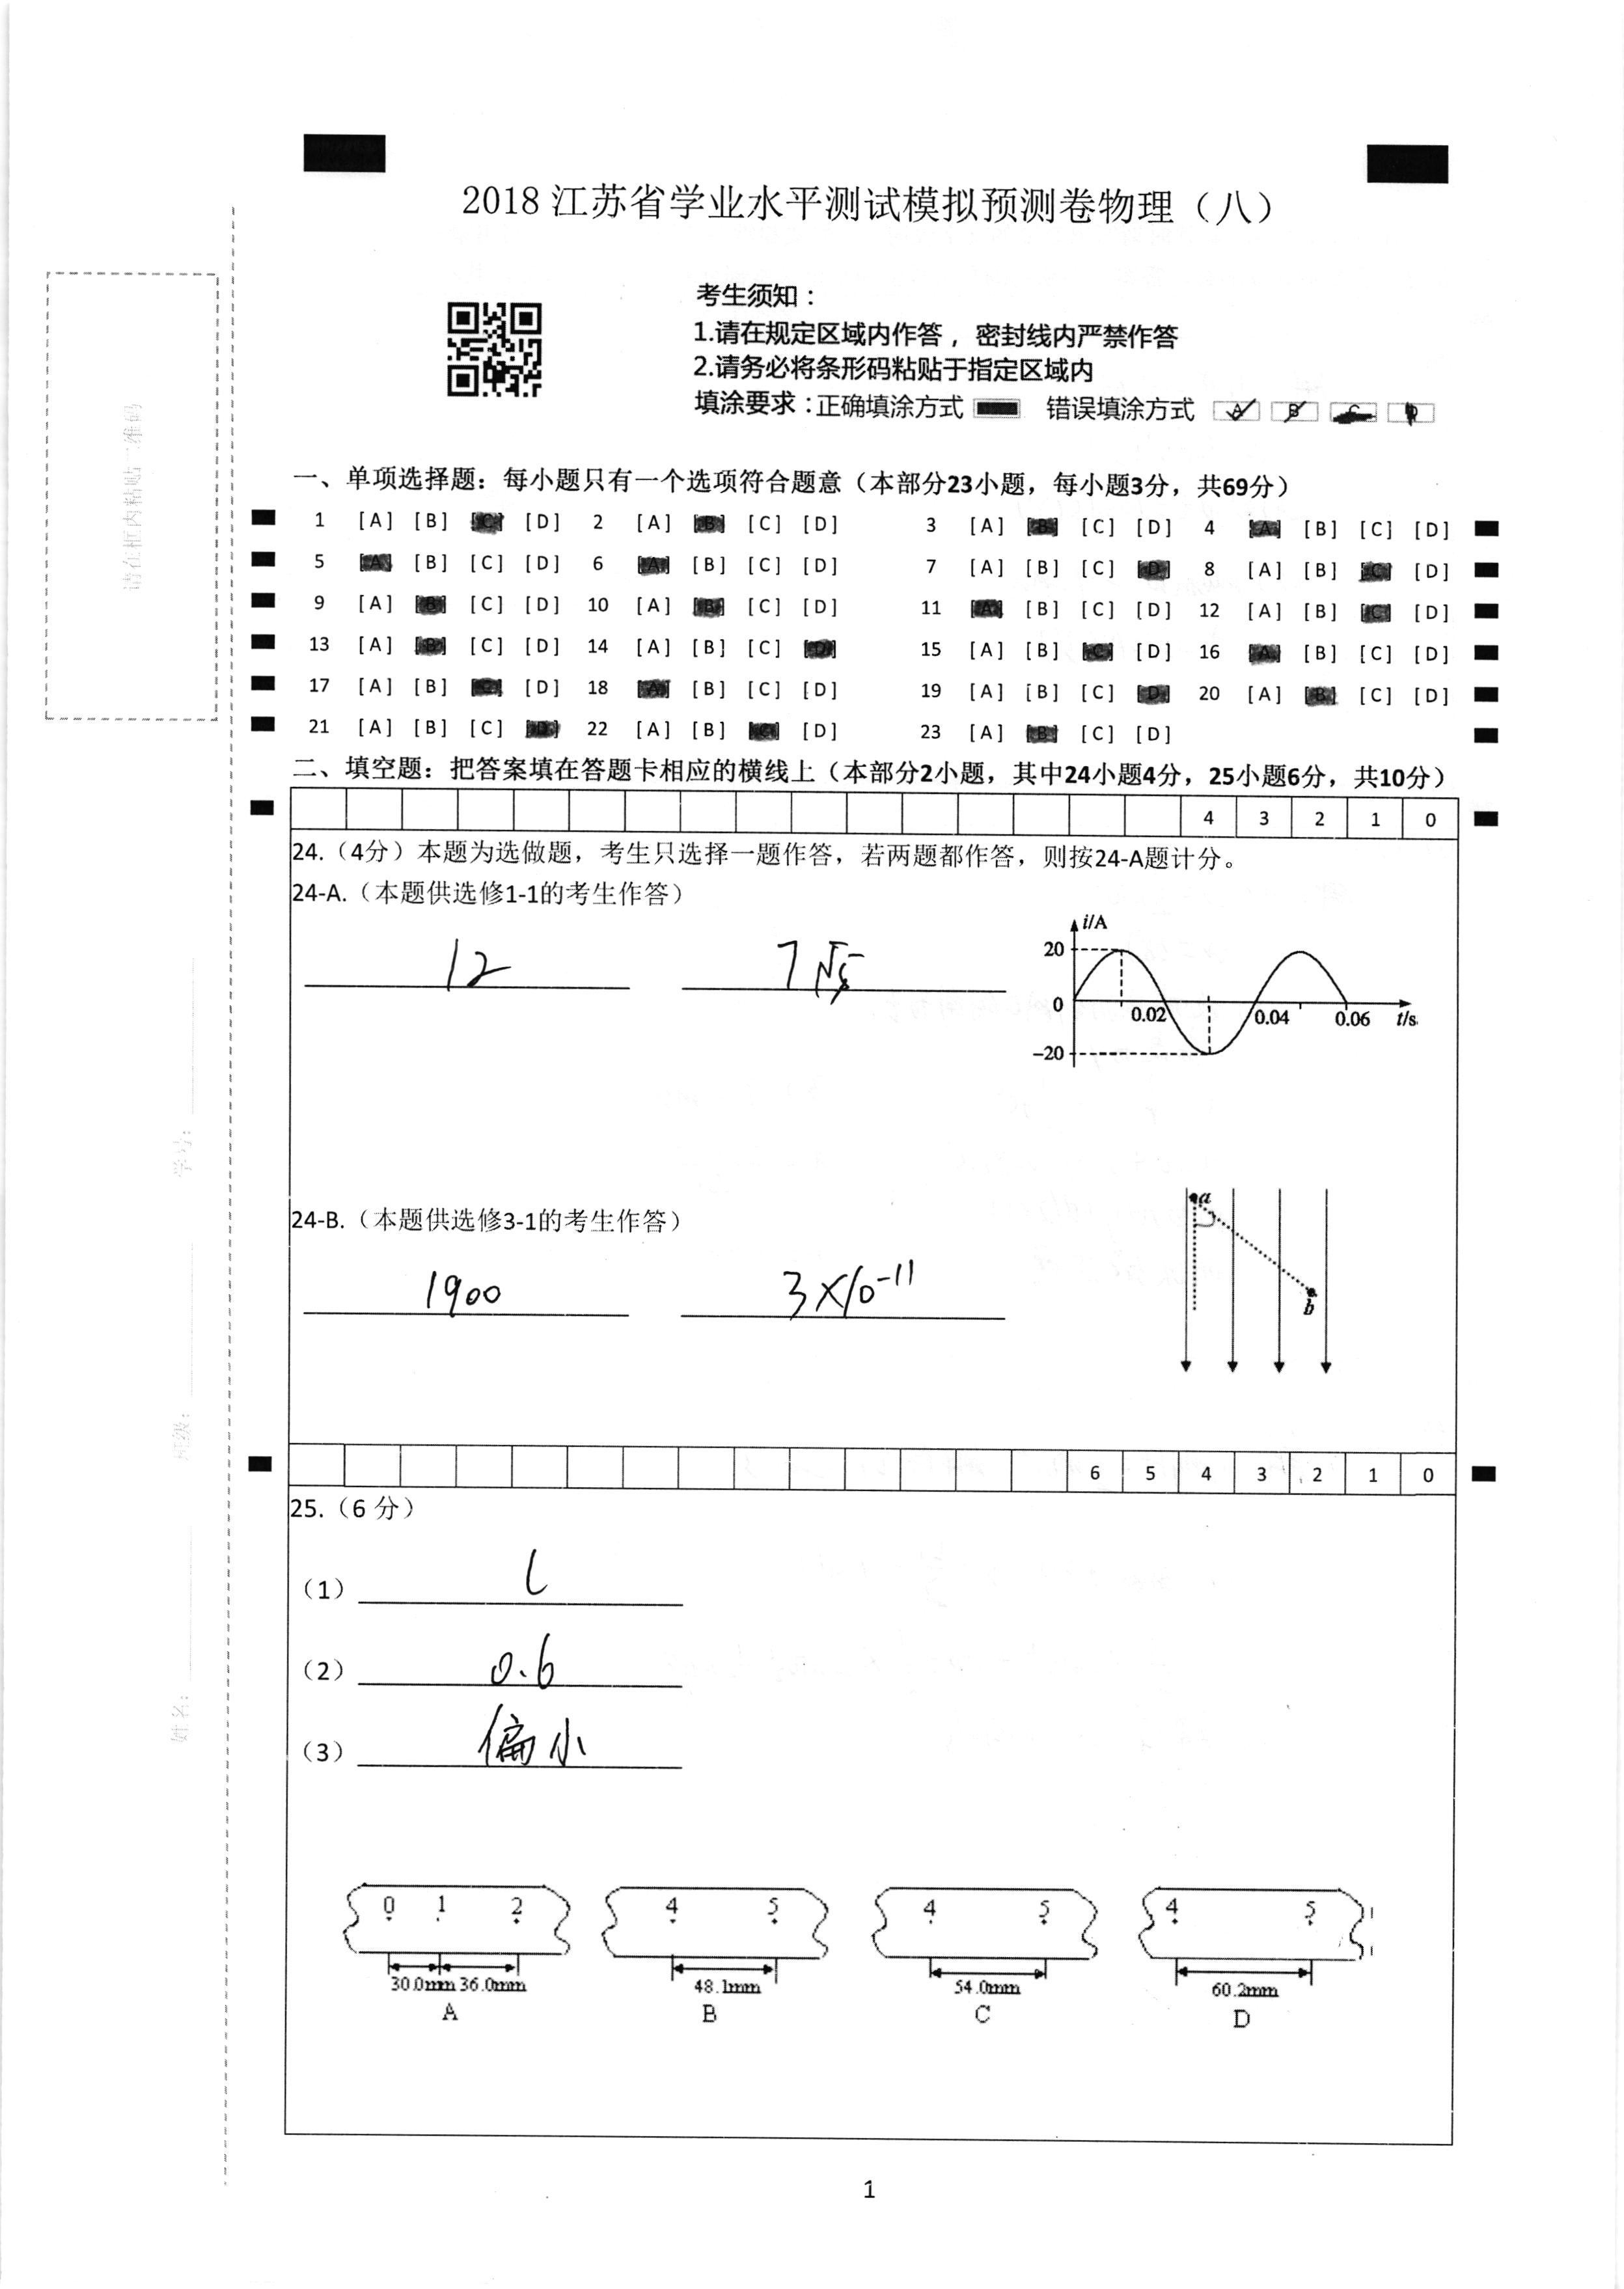 2018江苏省学业水平测试模拟预测卷物理（八）
考生须知：
1.请在规定区域内作答，密封线内严禁作答
2.请务必将条形码粘贴于指定区域内
填涂要求：正确填涂方式 错误填涂方式 A B C D
请在框内粘贴二维码
一、单项选择题：每小题只有一个选项符合题意（本部分23小题，每小题3分，共69分）
1 [A] [B] [C] [D] 2 [A] [B] [C] [D] 3 [A] [B] [C] [D] 4 [A] [B] [C] [D]
5 [A] [B] [C] [D] 6 [A] [B] [C] [D] 7 [A] [B] [C] [D] 8 [A] [B] [C] [D]
9 [A] [B] [C] [D] 10 [A] [B] [C] [D] 11 [A] [B] [C] [D] 12 [A] [B] [C] [D]
13 [A] [B] [C] [D] 14 [A] [B] [C] [D] 15 [A] [B] [C] [D] 16 [A] [B] [C] [D]
17 [A] [B] [C] [D] 18 [A] [B] [C] [D] 19 [A] [B] [C] [D] 20 [A] [B] [C] [D]
21 [A] [B] [C] [D] 22 [A] [B] [C] [D] 23 [A] [B] [C] [D]
二、填空题：把答案填在答题卡相应的横线上（本部分2小题，其中24小题4分，25小题6分，共10分）
4 3 2 1 0
24.（4分）本题为选做题，考生只选择一题作答，若两题都作答，则按24-A题计分。
24-A.（本题供选修1-1的考生作答）
12
i/A
20
0
0.02
0.04
0.06
t/s
-20
学号：
24-B.（本题供选修3-1的考生作答）
1900 3×10⁻¹¹
a
b
班级：
6 5 4 3 2 1 0
25.（6分）
（1）
（2） 0.6
（3） 偏小
姓名：
0 1 2
30.0mm 36.0mm
A
4 5
48.1mm
B
4 5
54.0mm
C
4 5
60.2mm
D
1